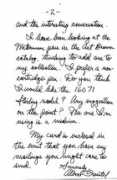 - 2 -
and the interesting conversation.
I have been looking at the
Waterman pens in the Art Brown
catalog, thinking to add one to
my collection. I prefer a non-
cartridge pen. Do you think
I would like the 16071
 model? Any suggestion
on the point? The one I'm
using is a medium.
My card is enclosed in
the event that you have any
mailings you might care to
send.
Sincerely,
Albert